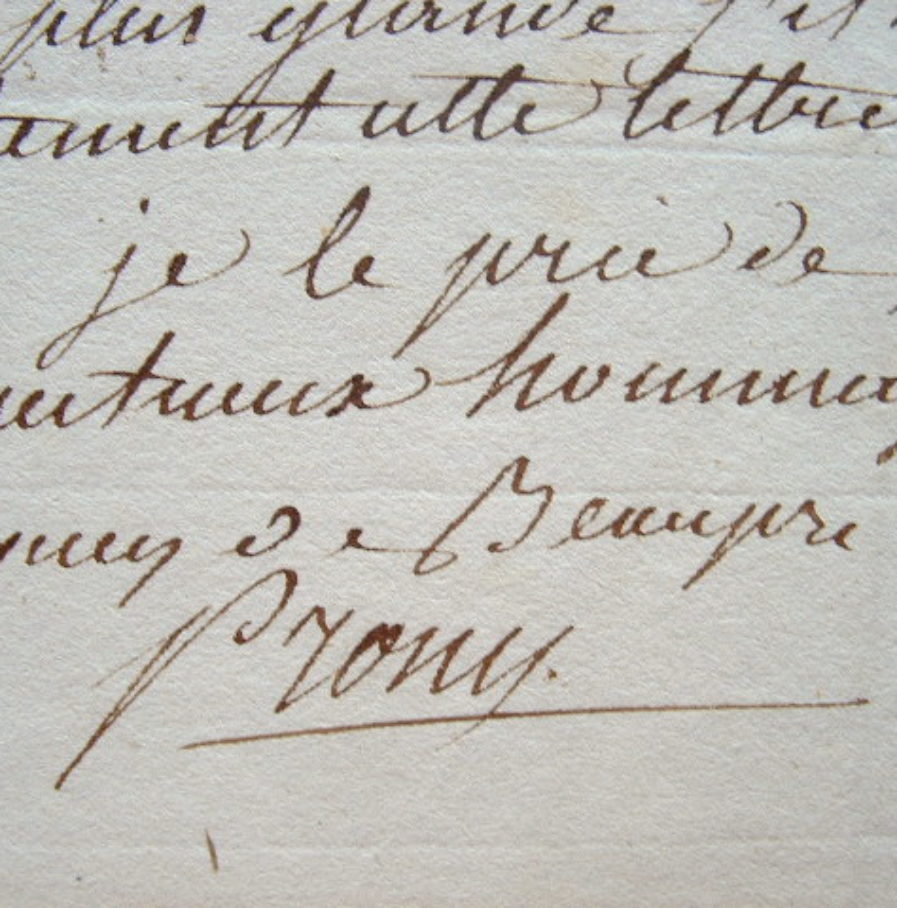 plus grande j'ai
ement cette lettre
je le prie de
ectueux hommag
de Beaupré
Prony.